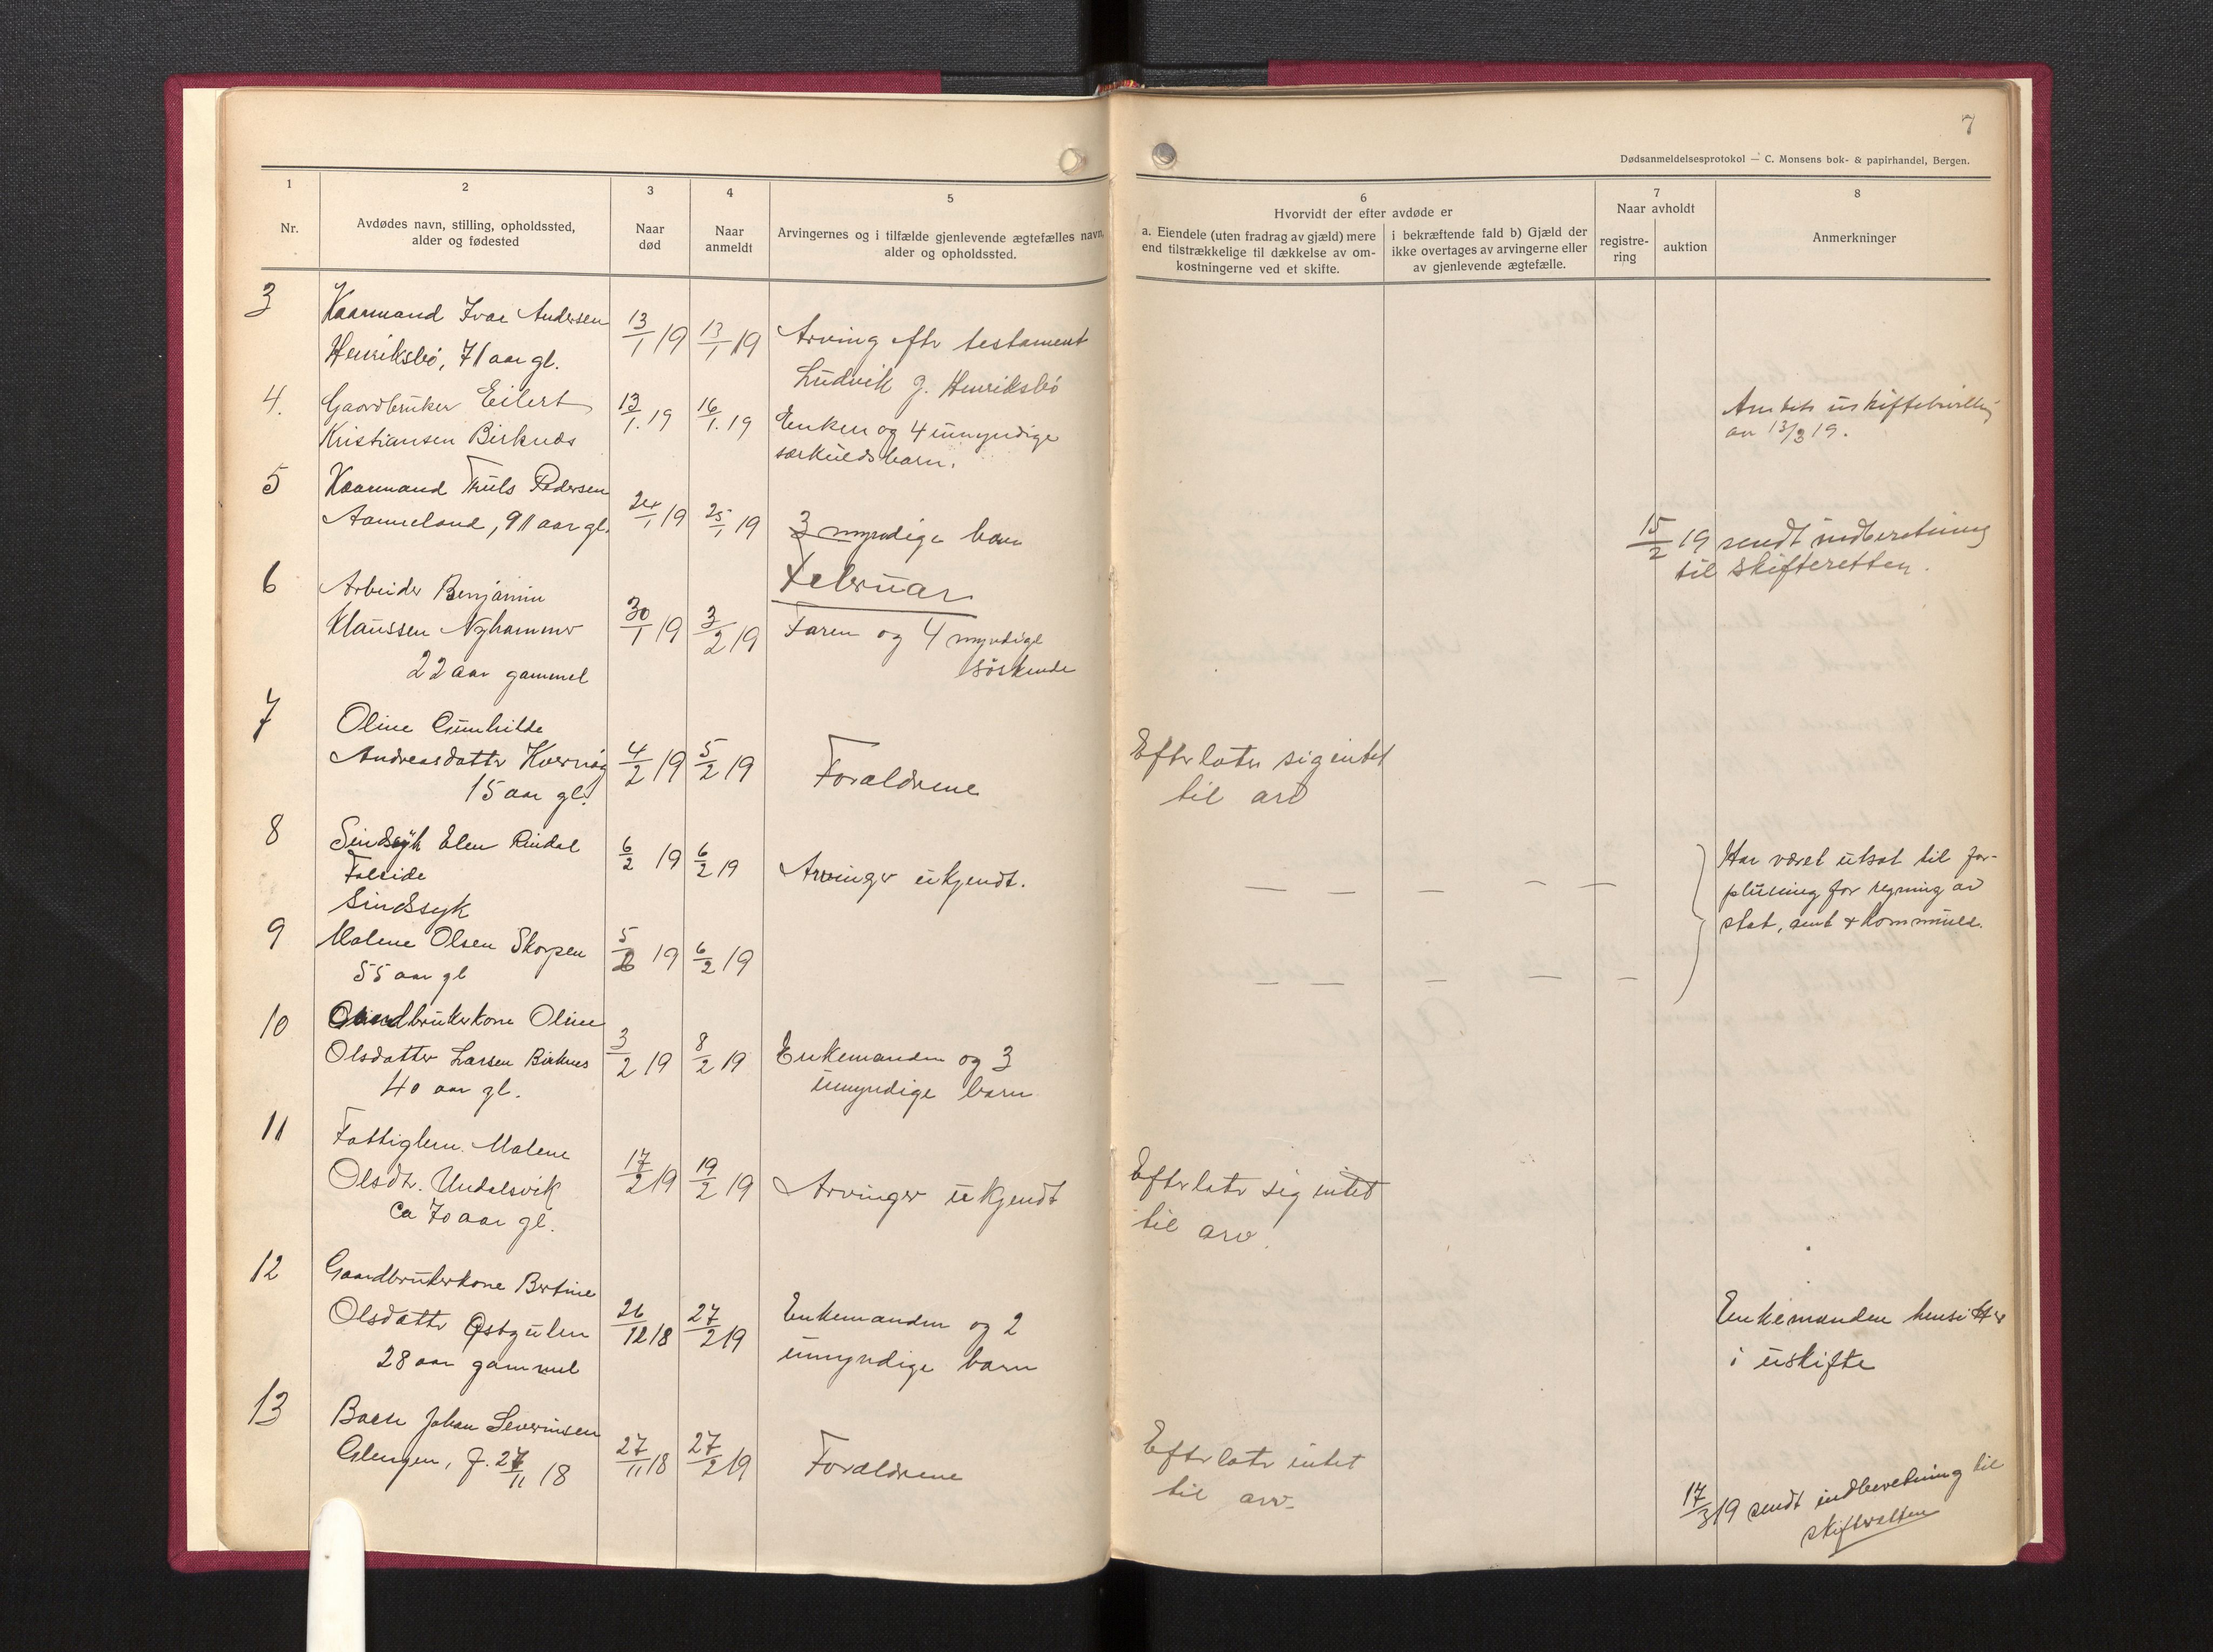 7
Dødsanmeldelsesprotokol — C. Monsens bok- & papirhandel, Bergen.
1
Nr.
2
Avdødes navn, stilling, opholdssted,
alder og fødested
3
Naar
død
4
Naar
anmeldt
5
Arvingernes og i tilfælde gjenlevende ægtefælles navn,
alder og opholdssted.
6
Hvorvidt der efter avdøde er
a. Eiendele (uten fradrag av gjæld) mere
end tilstrækkelige til dækkelse av om-
kostningerne ved et skifte.
i bekræftende fald b) Gjæld der
ikke overtages av arvingerne eller
av gjenlevende ægtefælle.
7
Naar avholdt
registre-
ring
auktion
8
Anmerkninger
3
Kaarmand Ivar Andersen
Henriksbö, 71 aar gl.
13/1 19
13/1 19
Arving eftr testament
Ludvik J. Henriksbö
4.
Gaardbruker Eilert
Kristiansen Birknes
13/1. 19
16/1. 19
Enken og 4 umyndige
særkuldsbarn.
Amtets uskiftebevilling
av 13/3 19.
5
Kaarmand Truls Pedersen
Aameland, 91 aar gl.
24/1 19
25/1 19
3 myndige barn
15/2 19 sendt indberetning
til skifteretten.
Februar
6
Arbeider Benjamin
Klaussen Nyhammer
22 aar gammel
30/1 19
3/2 19
Faren og 4 myndige
söskende
7
Oline Gunhilde
Andreasdattr Kvernöy
15 aar gl.
4/2 19
5/2 19
Forældrene
Efterlater sig intet
til arv
8
Sindsyk Elen Rindal
Faleide
6/2 19
6/2 19
Arvinger ukjendt.
— — — — —
Har været utsat til for-
pleining for regning av
stat, amt & kommune.
9
Sindssyk
Malene Olsen Skorpen
55 aar gl
5/2 19
6/2 19
— — — — —
10
Gaardbrukerkone Oline
Olsdatter Larsen Birknes
40 aar gl.
3/2 19
8/2 19
Enkemanden og 3
umyndige barn
11
Fattiglem. Malene
Olsdtr. Undalsvik
ca 70 aar gl.
17/2 19
19/2 19
Arvinger ukjendt
Efterlatr sig intet
til arv.
12
Gaardbrukerkone Bertine
Olsdattr Østgulen
28 aar gammel
26/12 18
27/2 19
Enkemanden og 2
umyndige barn
Enkemanden hensitter
i uskifte
13
Barn Johan Severinsen
Glengen, f. 27/11 18
27/11 18
27/2 19
Forældrene
Efterlatr intet
til arv.
17/3 19 sendt indberetning til
skifteretten